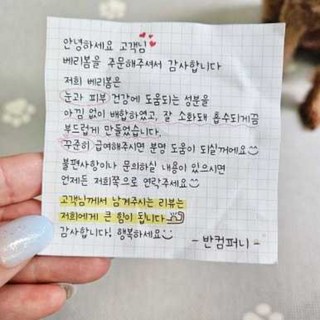 안녕하세요 고객님
베리봄을 주문해주셔서 감사합니다
저희 베리봄은
눈과 피부 건강에 도움되는 성분을
아낌 없이 배합하였고, 잘 소화돼 흡수되게끔
부드럽게 만들었습니다.
꾸준히 급여해주시면 분명 도움이 되실꺼에요
불편사항이나 문의하실 내용이 있으시면
언제든 저희쪽으로 연락주세요
고객님께서 남겨주시는 리뷰는
저희에게 큰 힘이 됩니다
감사합니다! 행복하세요
- 반컴퍼니 -